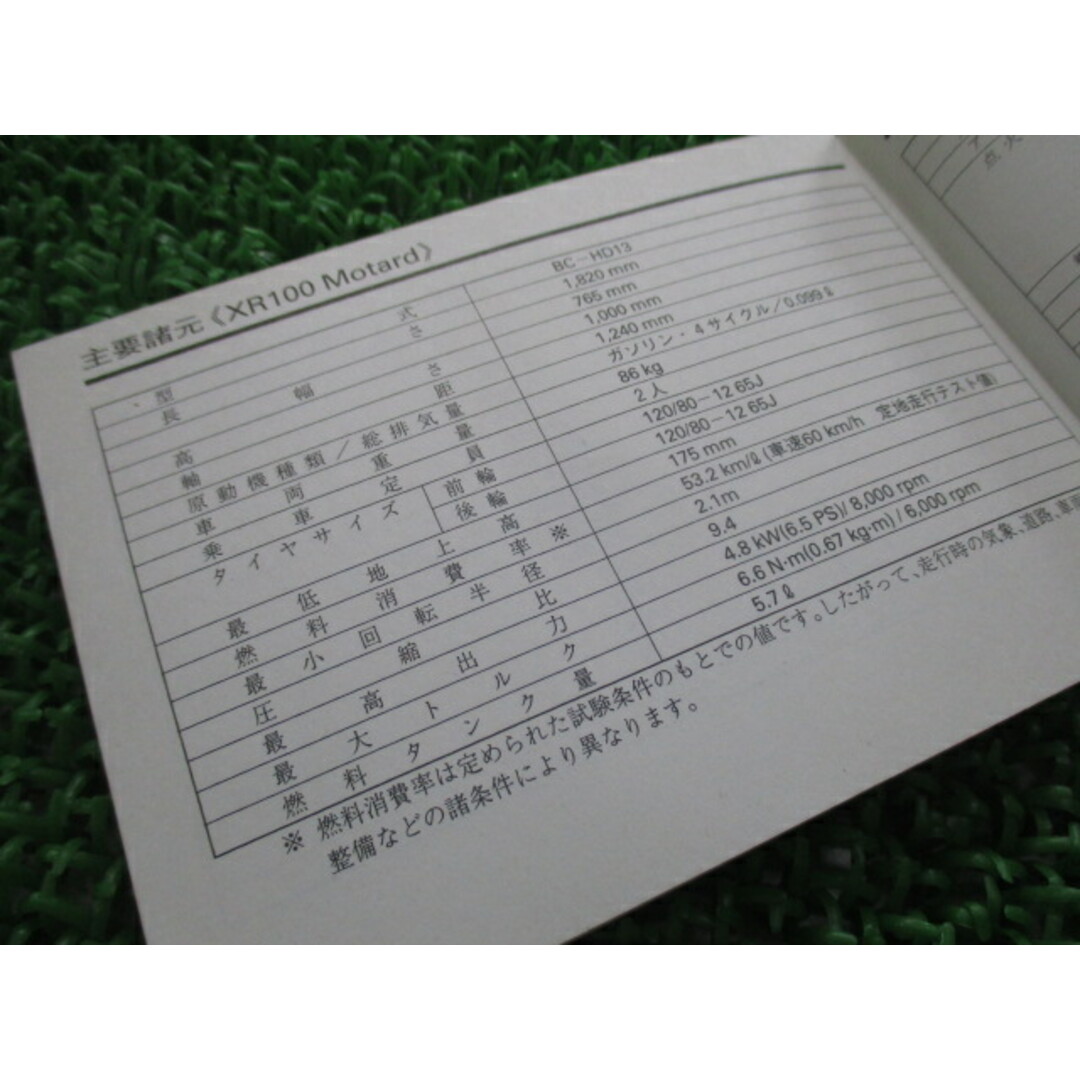 主要諸元《XR100 Motard》
型式 BC-HD13
長さ 1,820 mm
幅 765 mm
高さ 1,000 mm
軸距 1,240 mm
原動機種類/総排気量 ガソリン・4サイクル/0.099ℓ
車両重量 86 kg
乗車定員 2人
タイヤサイズ 前輪 120/80-12 65J
後輪 120/80-12 65J
最低地上高 175 mm
燃料消費率※ 53.2 km/ℓ(車速60 km/h 定地走行テスト値)
最小回転半径 2.1m
圧縮比 9.4
最高出力 4.8 kW(6.5 PS)/8,000 rpm
最大トルク 6.6 N·m(0.67 kg·m)/6,000 rpm
燃料タンク量 5.7ℓ
※ 燃料消費率は定められた試験条件のもとでの値です。したがって、走行時の気象、道路、車両、
整備などの諸条件により異なります。
点火